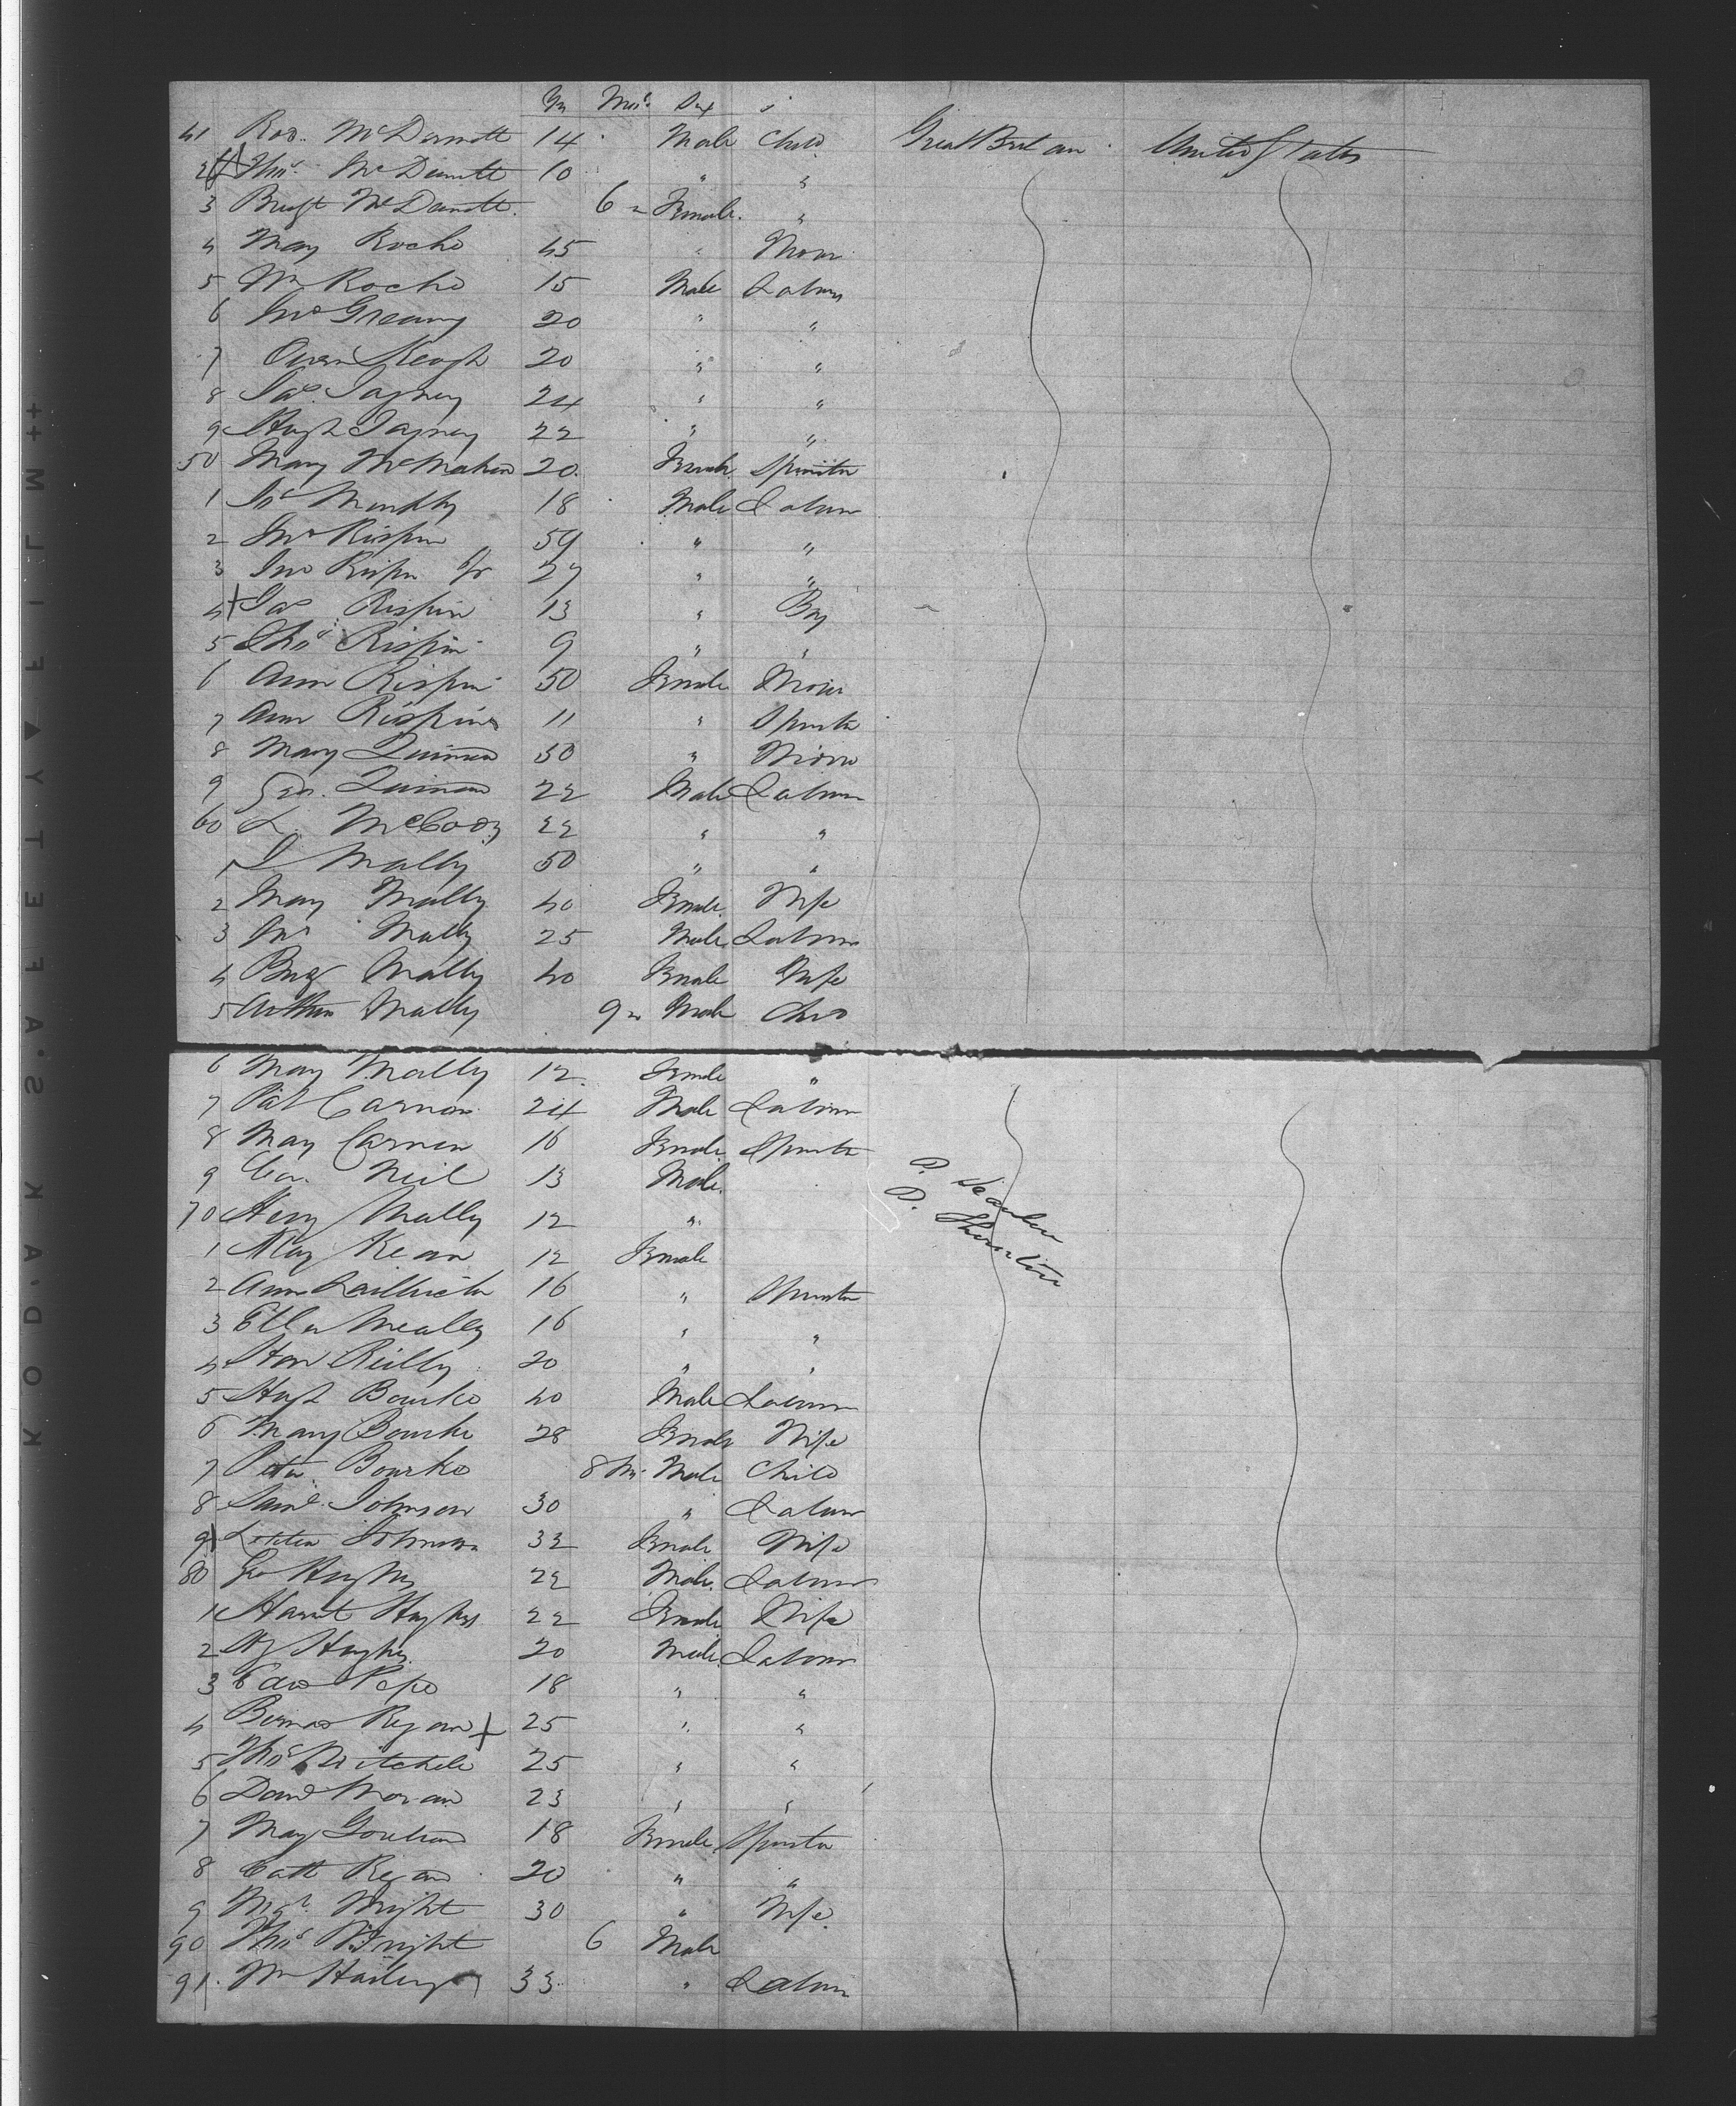 Yrs Mos. Sex
41 Ros. McDermott 14 Male Child Great Britain United States
2 Thos. McDermott 10 " "
3 Bridgt McDermott 6 Female "
4 Mary Roche 45 "
5 Wm Roche 15 Male Labour
6 Jno 20 " "
7 Owen Keogh 20 " "
8 Jas. 24 " "
9 Hugh 22 " "
50 Mary McMahon 20 Female Spinster
1 Murphy 18 Male Labour
2 Jno Rispin 59 " "
3 Jno Rispin Jr 27 " "
4 Jas Rispin 13 " Boy
5 Thos Rispin 9 " "
6 Ann Rispin 50 Female
7 Ann Rispin 11 " Spinster
8 Mary 50 "
9 Geo. 22 Male Labour
60 L McCooy 22 " "
1 J Mally 50 " "
2 Mary Mally 40 Female Wife
3 Jno Mally 25 Male Labour
4 Bridgt Mally 40 Female Wife
5 Arthur Mally 9 Male Child
6 Mary Mally 12 Female "
7 Pat Carnon 24 Male Labour
8 Mary Carnon 16 Female Spinster
9 Neil 13 Male
70 Henry Mally 12 "
1 Mary Kean 12 Female
2 Ann 16 " Spinster
3 Ellen Meally 16 " "
4 Hon Reilly 20 " "
5 Hugh Bourke 40 Male Labour
6 Mary Bourke 28 Female Wife
7 Peter Bourke 8 Ms Male Child
8 Saml. Johnson 30 " Labour
9 Johnson 32 Female Wife
80 Geo Hughes 22 Male Labour
1 Harriet Hughes 22 Female Wife
2 Hy Hughes 20 Male Labour
3 Edwd 18 " "
4 Bernard Regan 25 " "
5 Thos Mitchele 25 " "
6 David Moran 23 " "
7 Mary 18 Female Spinster
8 Cath Regan 20 " "
9 Mgt. Wright 30 " Wife
90 Thos Wright 6 Male
91 Wm 33 " Labour
D.
D. Thornton